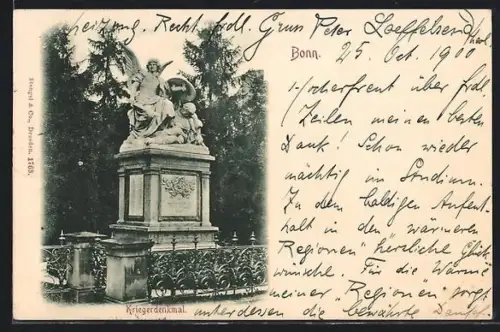 heizung. Recht frdl. Gruss Peter Loeffelsend
Bonn.
25. Oct. 1900
Hocherfreut über frdl.
Zeilen meinen besten
Dank! Schon wieder
mächtig im Studium.
Zu dem baldigen Aufent-
halt in den "wärmeren
Regionen" herzliche Glück
wünsche. Für die Wärme
meiner "Regionen" sorgt
unterdessen die bewährte Dampf-
Kriegerdenkmal.
Stengel & Co., Dresden, 1763.